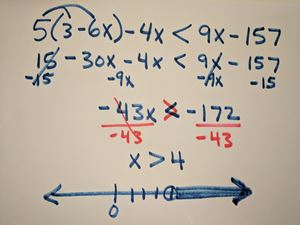 5(3-6x)-4x < 9x-157
15-30x-4x < 9x-157
-15 -9x -9x -15
-43x < -172
-43 -43
x > 4
0